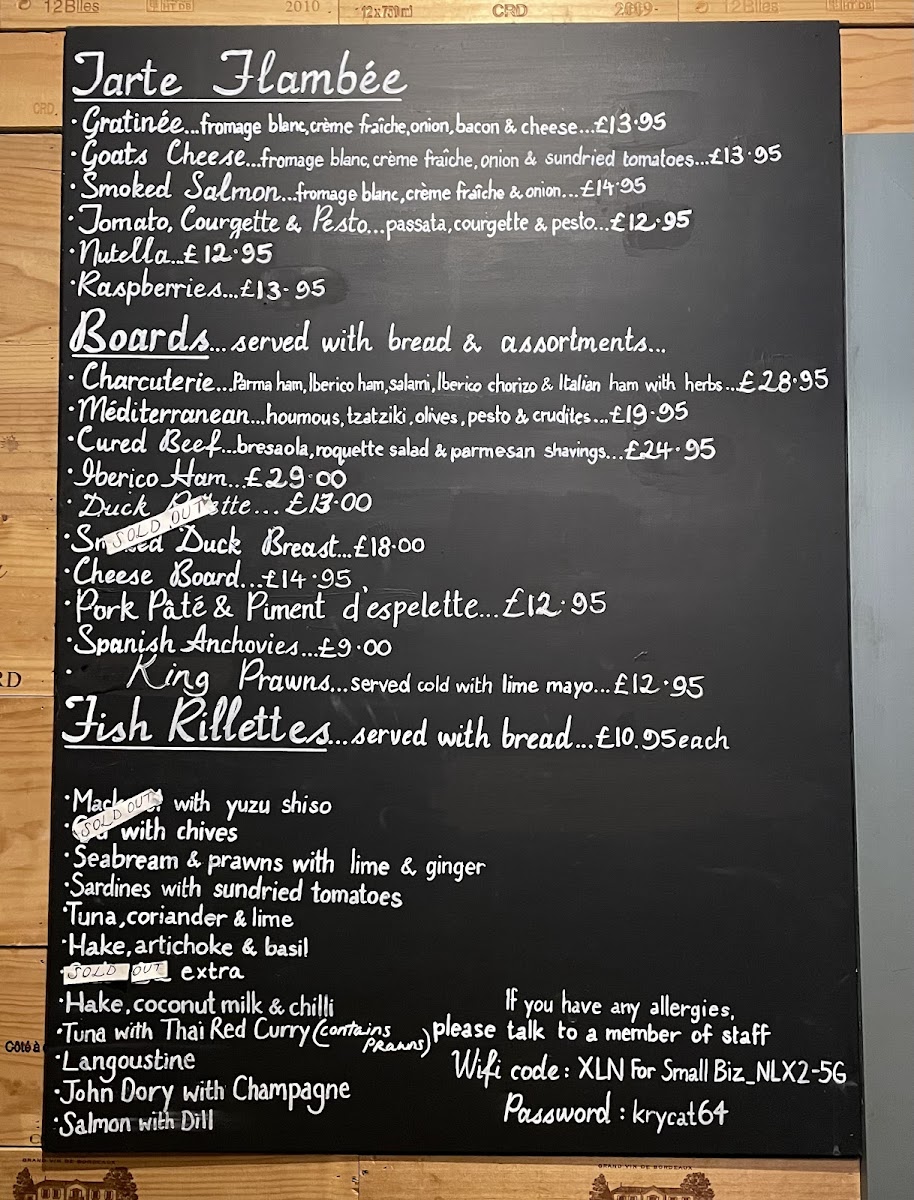 12Blles 2010 12x750ml CRD 2009 12Blles
CRD
Tarte Flambée
·Gratinée...fromage blanc, crème fraîche, onion, bacon & cheese...£13.95
·Goats Cheese...fromage blanc, crème fraîche, onion & sundried tomatoes...£13.95
·Smoked Salmon...fromage blanc, crème fraîche & onion...£14.95
·Tomato, Courgette & Pesto...passata, courgette & pesto...£12.95
·Nutella...£12.95
·Raspberries...£13.95
Boards...served with bread & assortments...
·Charcuterie...Parma ham, Iberico ham, salami, Iberico chorizo & Italian ham with herbs...£28.95
·Méditerranean...houmous, tzatziki, olives, pesto & crudites...£19.95
·Cured Beef...bresaola, roquette salad & parmesan shavings...£24.95
·Iberico Ham...£29.00
·Duck tte...£13.00
SOLD OUT
· Duck Breast...£18.00
·Cheese Board...£14.95
·Pork Pâté & Piment d'espelette...£12.95
·Spanish Anchovies...£9.00
· King Prawns...served cold with lime mayo...£12.95
Fish Rillettes...served with bread...£10.95 each
· SOLD OUT with yuzu shiso
· SOLD OUT with chives
·Seabream & prawns with lime & ginger
·Sardines with sundried tomatoes
·Tuna, coriander & lime
·Hake, artichoke & basil
·SOLD OUT extra
·Hake, coconut milk & chilli
·Tuna with Thai Red Curry (contains PRAWNS)
·Langoustine
·John Dory with Champagne
·Salmon with Dill
If you have any allergies,
please talk to a member of staff
Wifi code: XLN For Small Biz_NLX2-5G
Password: krycat64
Côté à
GRAND VIN DE BORDEAUX
GRAND VIN DE BORDEAUX